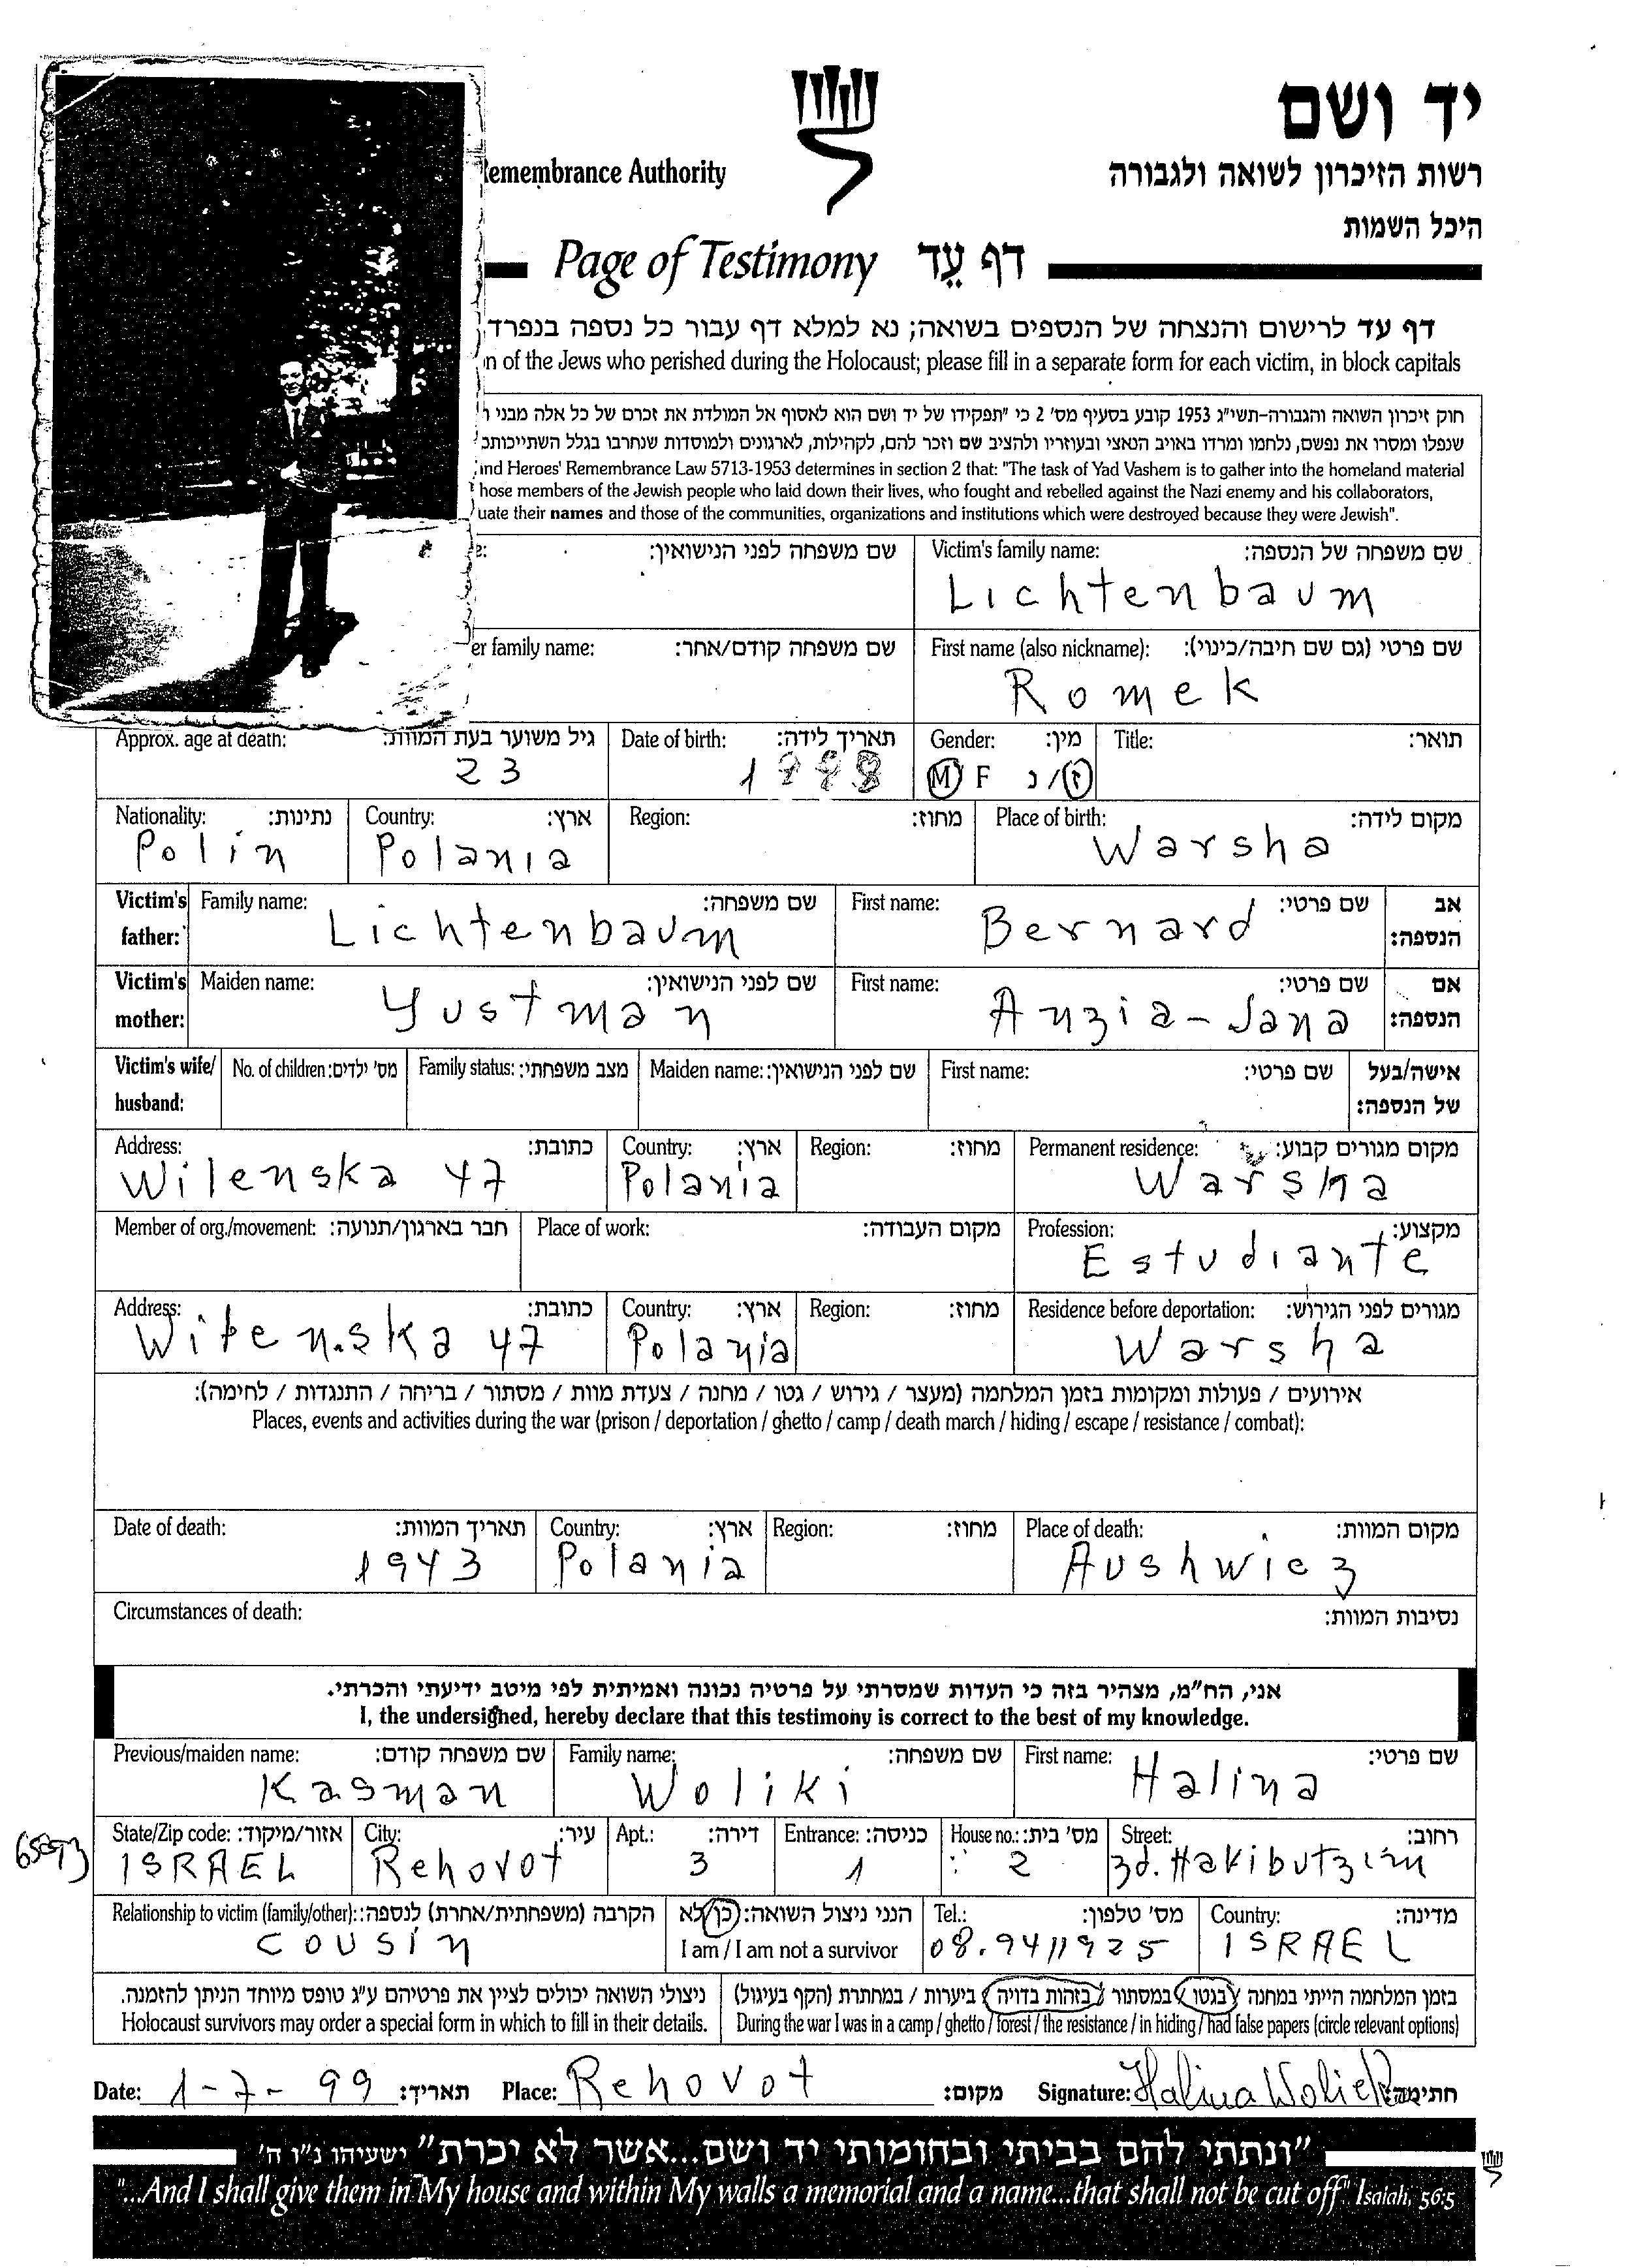 יד ושם
רשות הזיכרון לשואה ולגבורה
היכל השמות
Remembrance Authority
Page of Testimony דף עֵד
דף עד לרישום והנצחה של הנספים בשואה; נא למלא דף עבור כל נספה בנפרד
of the Jews who perished during the Holocaust; please fill in a separate form for each victim, in block capitals
חוק זיכרון השואה והגבורה-תשי"ג 1953 קובע בסעיף מס' 2 כי "תפקידו של יד ושם הוא לאסוף אל המולדת את זכרם של כל אלה מבני
שנפלו ומסרו את נפשם, נלחמו ומרדו באויב הנאצי ובעוזריו ולהציב שם וזכר להם, לקהילות, לארגונים ולמוסדות שנחרבו בגלל השתייכותם
and Heroes' Remembrance Law 5713-1953 determines in section 2 that: "The task of Yad Vashem is to gather into the homeland material
those members of the Jewish people who laid down their lives, who fought and rebelled against the Nazi enemy and his collaborators,
uate their names and those of the communities, organizations and institutions which were destroyed because they were Jewish".
שם משפחה לפני הנישואין: Victim's family name: שם משפחה של הנספה:
Lichtenbaum
er family name: שם משפחה קודם/אחר: First name (also nickname): שם פרטי (גם שם חיבה/כינוי):
Romek
Approx. age at death: גיל משוער בעת המוות: Date of birth: תאריך לידה: Gender: מין: Title: תואר:
23 M F ז/נ
Nationality: נתינות: Country: ארץ: Region: מחוז: Place of birth: מקום לידה:
Polin Polania Warsha
Victim's father: Family name: שם משפחה: First name: שם פרטי: אב הנספה:
Lichtenbaum Bernard
Victim's mother: Maiden name: שם לפני הנישואין: First name: שם פרטי: אם הנספה:
Yustman Anzia-Jana
Victim's wife/ husband: No. of children: מס' ילדים: Family status: מצב משפחתי: Maiden name: שם לפני הנישואין: First name: שם פרטי: אישה/בעל של הנספה:
Address: כתובת: Country: ארץ: Region: מחוז: Permanent residence: מקום מגורים קבוע:
Wilenska 47 Polania Warsha
Member of org./movement: חבר בארגון/תנועה: Place of work: מקום העבודה: Profession: מקצוע:
Estudiante
Address: כתובת: Country: ארץ: Region: מחוז: Residence before deportation: מגורים לפני הגירוש:
Wilenska 47 Polania Warsha
אירועים / פעולות ומקומות בזמן המלחמה (מעצר / גירוש / גטו / מחנה / צעדת מוות / מסתור / בריחה / התנגדות / לחימה):
Places, events and activities during the war (prison / deportation / ghetto / camp / death march / hiding / escape / resistance / combat):
Date of death: תאריך המוות: Country: ארץ: Region: מחוז: Place of death: מקום המוות:
1943 Polania Aushwicz
Circumstances of death: נסיבות המוות:
אני, הח"מ, מצהיר בזה כי העדות שמסרתי על פרטיה נכונה ואמיתית לפי מיטב ידיעתי והכרתי.
I, the undersigned, hereby declare that this testimony is correct to the best of my knowledge.
Previous/maiden name: שם משפחה קודם: Family name: שם משפחה: First name: שם פרטי:
Kasman Woliki Halina
State/Zip code: אזור/מיקוד: City: עיר: Apt.: דירה: Entrance: כניסה: House no.: מס' בית: Street: רחוב:
ISRAEL Rehovot 3 1 2 3d. Hakibutzim
Relationship to victim (family/other): הקרבה (משפחתית/אחרת) לנספה: הנני ניצול השואה: כן/לא Tel.: מס' טלפון: Country: מדינה:
cousin I am / I am not a survivor 08.9411925 ISRAEL
ניצולי השואה יכולים לציין את פרטיהם ע"ג טופס מיוחד הניתן להזמנה. בזמן המלחמה הייתי במחנה / בגטו / במסתור / בזהות בדויה / ביערות / במחתרת (הקף בעיגול)
Holocaust survivors may order a special form in which to fill in their details. During the war I was in a camp / ghetto / forest / the resistance / in hiding / had false papers (circle relevant options)
Date: 1-7-99 תאריך: Place: Rehovot מקום: Signature: Halina חתימה:
"ונתתי להם בביתי ובחומותי יד ושם...אשר לא יכרת" ישעיהו נ"ו ה'
"...And I shall give them in My house and within My walls a memorial and a name...that shall not be cut off" Isaiah, 56:5